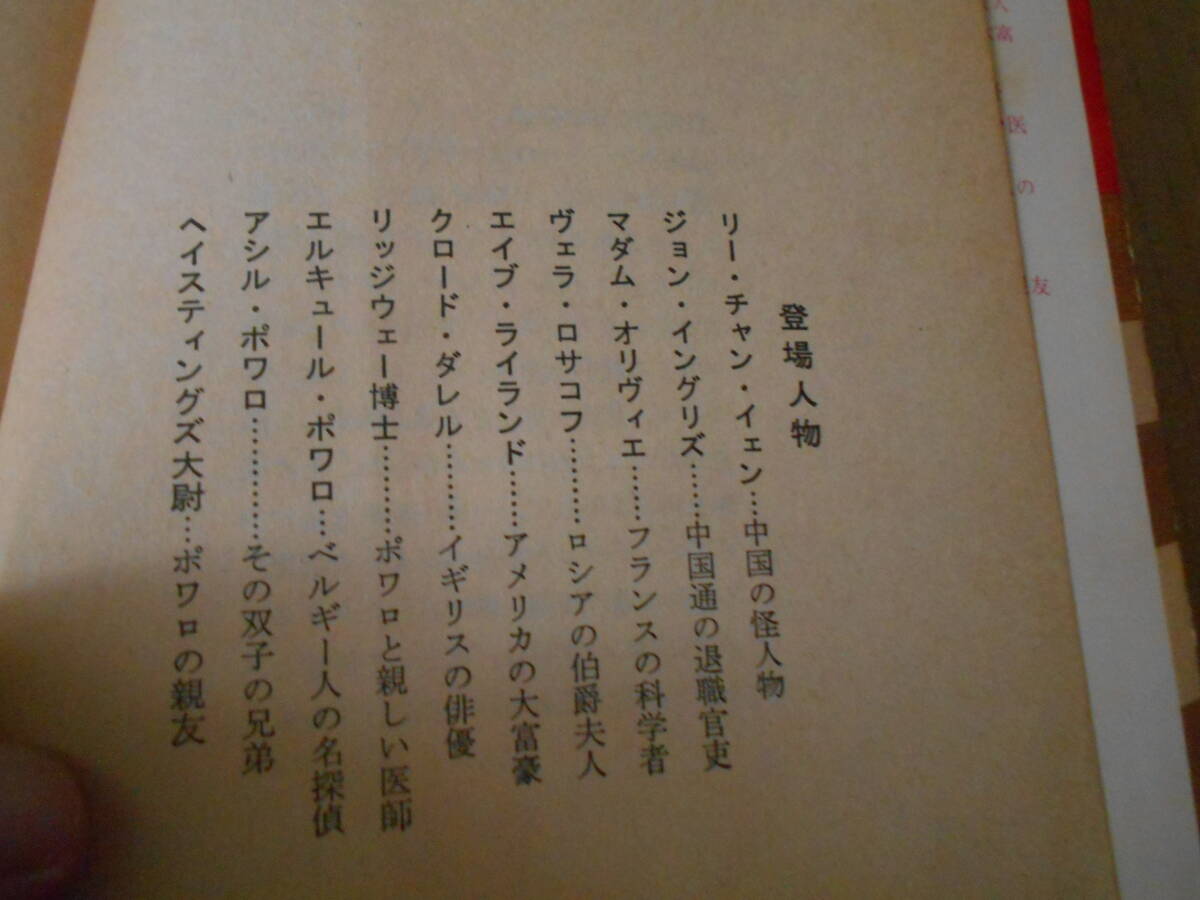 登場人物
リー・チャン・イェン…中国の怪人物
ジョン・イングリズ……中国通の退職官吏
マダム・オリヴィエ……フランスの科学者
ヴェラ・ロサコフ………ロシアの伯爵夫人
エイブ・ライランド……アメリカの大富豪
クロード・ダレル………イギリスの俳優
リッジウェー博士………ポワロと親しい医師
エルキュール・ポワロ…ベルギー人の名探偵
アシル・ポワロ…………その双子の兄弟
ヘイスティングズ大尉…ポワロの親友
人
富
医
の
友